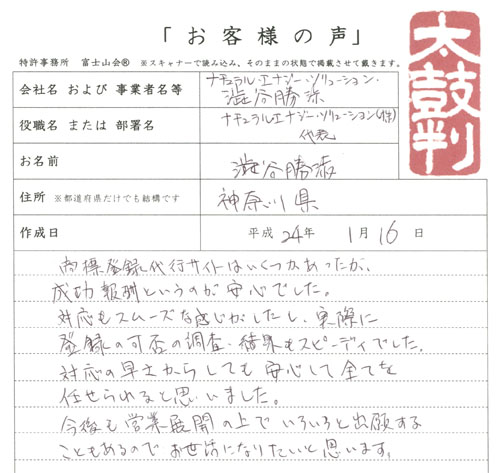 「お客様の声」
特許事務所 富士山会® ※スキャナーで読み込み、そのままの状態で掲載させて戴きます。
太鼓判
会社名 および 事業者名等 ナチュラル・エナジー・ソリューション・
澁谷勝
役職名 または 部署名 ナチュラルエナジー・ソリューション(株)
代表
お名前 澁谷勝
住所 ※都道府県だけでも結構です 神奈川県
作成日 平成 24年 1月 16日
商標登録代行サイトはいくつかあったが、
成功報酬というのが安心でした。
対応もスムーズな感じがしたし、実際に
登録の可否の調査・結果もスピーディでした。
対応の早さからしても安心して全てを
任せられると思いました。
今後も営業展開の上でいろいろと出願する
こともあるのでお世話になりたいと思います。